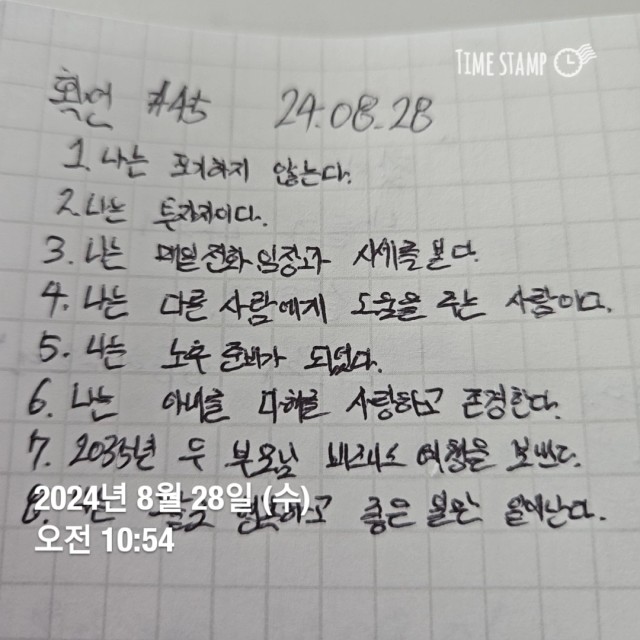 TIME STAMP
확언 #45 24.08.28
1. 나는 포기하지 않는다.
2. 나는 투자자이다.
3. 나는 매일 전화 임장과 시세를 본다.
4. 나는 다른 사람에게 도움을 주는 사람이다.
5. 나는 노후 준비가 되었다.
6. 나는 아내를 이해를 사랑하고 존경한다.
7. 2035년 두 부모님 비즈니스 여행을 보낸다.
8. 나는 행복하고 좋은 일만 일어난다.
2024년 8월 28일 (수)
오전 10:54